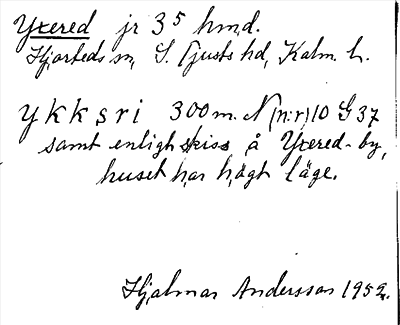 Yxered jr 3⁵ hmd.
Hjorteds sn, S. Tjusts hd, Kalm. l.
ykksri 300 m. N (n:r) 10 G 37
samt enligh skiss å Yxered-by,
huset har högt läge.
Hjalmar Andersson 1952.